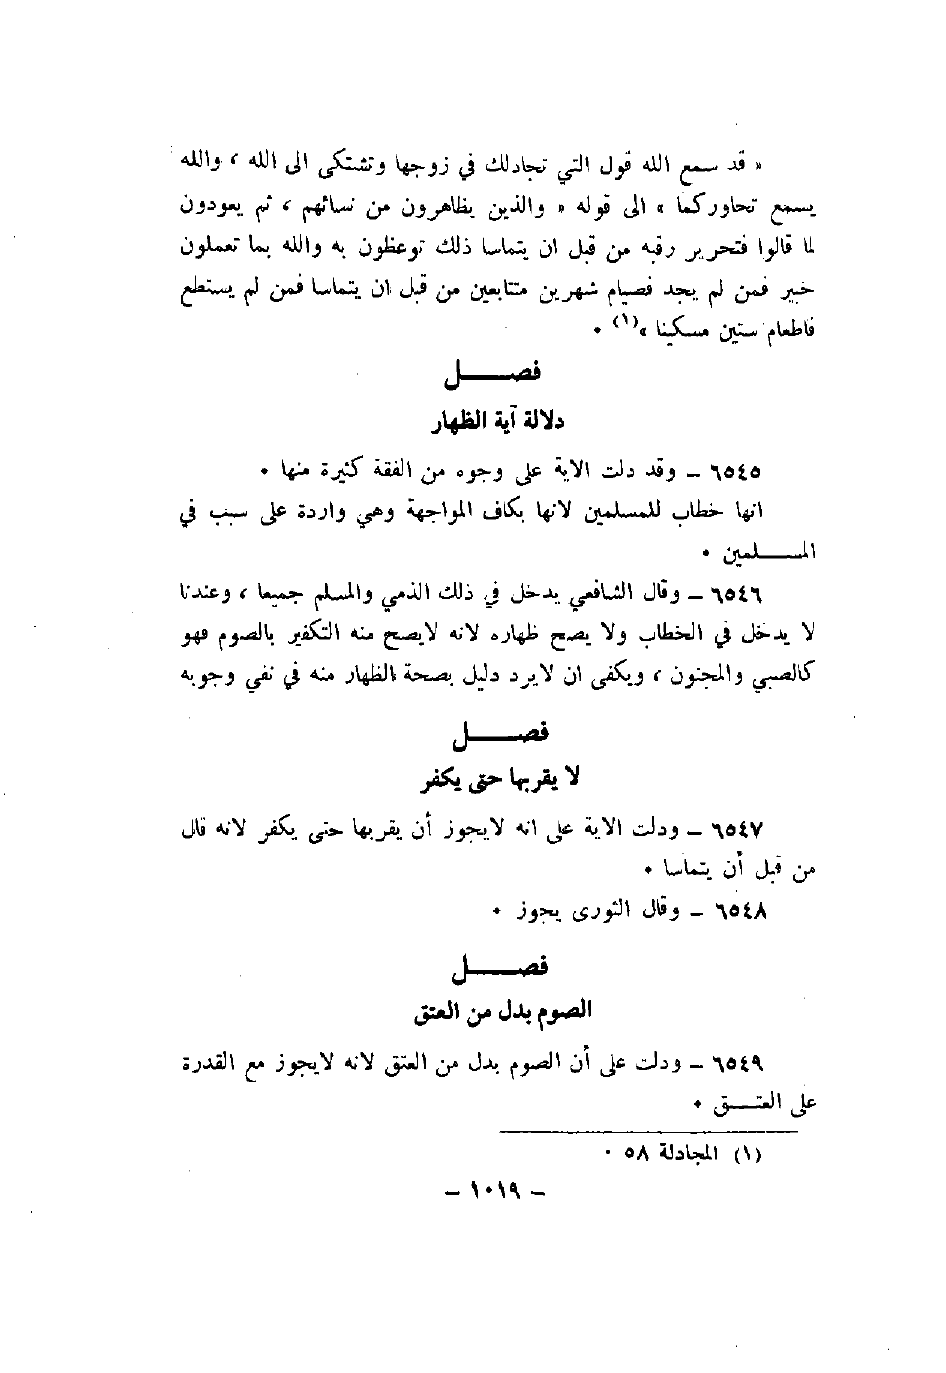 « قد سمع الله قول التي تجادلك في زوجها وتشتكى الى الله ، والله
يسمع تحاوركما » الى قوله « والذين يظاهرون من نسائهم ، ثم يعودون
لما قالوا فتحرير رقبه من قبل ان يتماسا ذلك توعظون به والله بما تعملون
خبير فمن لم يجد فصيام شهرين متتابعين من قبل ان يتماسا فمن لم يستطع
فاطعام ستين مسكينا »(١) ٠
فصـــل
دلالة آية الظهار
٦٥٤٥ – وقد دلت الاية على وجوه من الفقة كثيرة منها ٠
انها خطاب للمسلمين لانها بكاف المواجهة وهي واردة على سبب في
المـــلمين ٠
٦٥٤٦ – وقال الشافعي يدخل في ذلك الذمي والمسلم جميعا ، وعندنا
لا يدخل في الخطاب ولا يصح ظهاره لانه لايصح منه التكفير بالصوم فهو
كالصبي والمجنون ، ويكفى ان لايرد دليل بصحة الظهار منه في نفي وجوبه
فصـــل
لا يقربها حتى يكفر
٦٥٤٧ – ودلت الاية على انه لايجوز أن يقربها حتى يكفر لانه قال
من قبل أن يتماسا ٠
٦٥٤٨ – وقال الثورى يجوز ٠
فصـــل
الصوم بدل من العتق
٦٥٤٩ – ودلت على أن الصوم بدل من العتق لانه لايجوز مع القدرة
على العتـــق ٠
(١) المجادلة ٥٨ ٠
– ١٠١٩ –